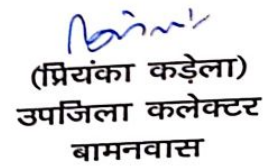 (प्रियंका कड़ेला)
उपजिला कलेक्टर
बामनवास